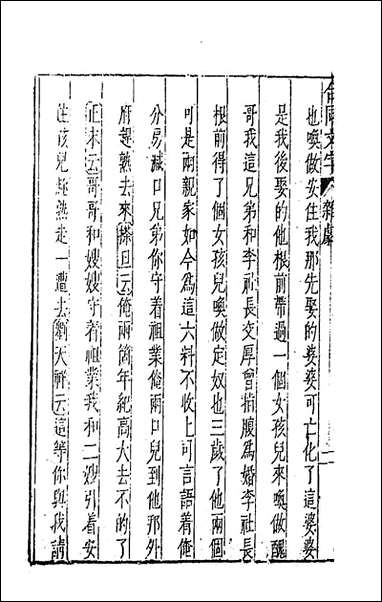 合同文字 雜劇 二
也喚做安住我那先娶的婆婆可亡化了這婆婆
是我後娶的他根前帶過一個女孩兒來喚做醜
哥我這兄弟和李社長交厚曾指腹爲婚李社長
根前得了個女孩兒喚做定奴也三歲了他兩個
可是兩親家如今爲這六料不收上司言語着俺
分房減口兄弟你守着祖業俺兩口兒到他那外
府趕熟去來搽旦云俺兩箇年紀高大去不的了
正末云哥哥和嫂嫂守着祖業我和二嫂引着安
住孩兒趕熟走一遭去劉天祥云這等你與我請